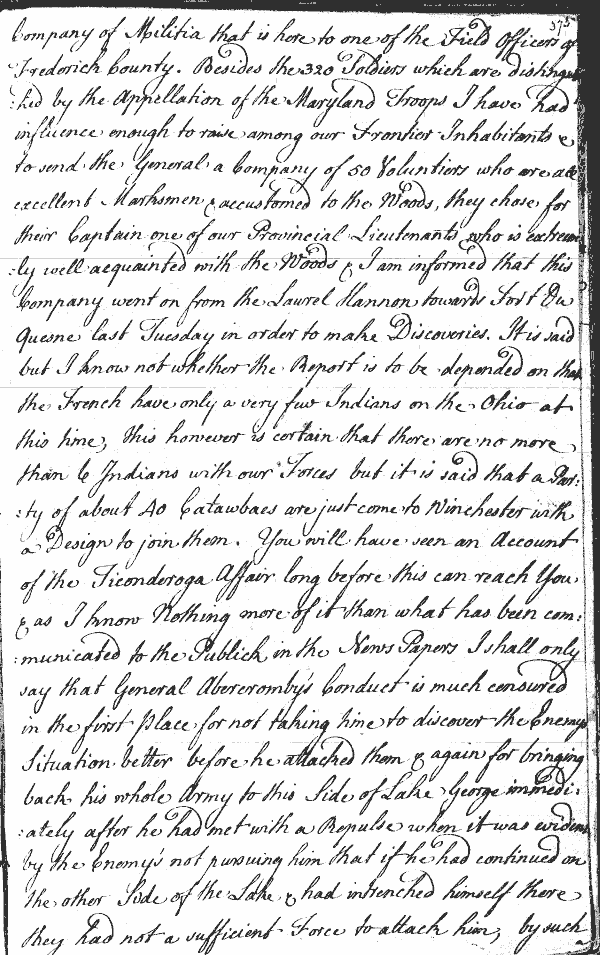 575
Company of Militia that is here to one of the Field Officers of
Frederick County. Besides the 320 Soldiers which are distingui
:hed by the Appellation of the Maryland Troops I have had
influence enough to raise among our Frontier Inhabitants &
to send the General a Company of 50 Voluntiers who are all
excellent Marksmen & accustomed to the Woods, they chose for
their Captain one of our Provincial Lieutenants who is extrem
:ly well acquainted with the Woods & I am informed that this
Company went on from the Laurel Hannon towards Fort Du
Quesne last Tuesday in order to make Discoveries. It is said
but I know not whether the Report is to be depended on that
the French have only a very few Indians on the Ohio at
this time, this however is certain that there are no more
than 6 Indians with our Forces but it is said that a Par:
:ty of about 40 Catawbaes are just come to Winchester with
a Design to join them. You will have seen an Account
of the Ticonderoga Affair long before this can reach You
& as I know Nothing more of it than what has been com:
:municated to the Publick in the News Papers I shall only
say that General Abercromby's Conduct is much censured
in the first Place for not taking time to discover the Enemys
Situation better before he attacked them & again for bringing
back his whole Army to this Side of Lake George immedi:
:ately after he had met with a Repulse when it was evident
by the Enemy's not pursuing him that if he had continued on
the other Side of the Lake & had intrenched himself there
they had not a sufficient Force to attack him, by such
a